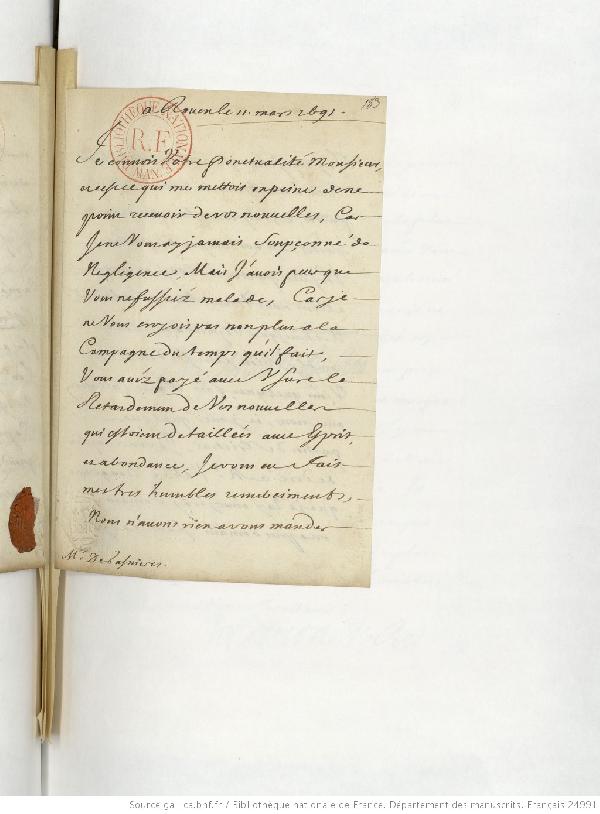 183
a Rouen le 11. mars 1691.
BIBLIOTHEQUE NATIONALE
R.F.
MAN.
Je connois Vostre Ponctualité Monsieur,
et c'est ce qui me mettoit en peine de ne
point recevoir de vos nouvelles, Car
Je ne Vous ay jamais Soupçonné de
Negligence, Mais J'avois peur que
Vous ne fussiéz malade, Car je
ne Vous croyois pas non plus a la
Campagne du temps qu'il fait,
Vous avéz payé avec Usure le
Retardement de Vos nouvelles
qui estoient detaillées avec Esprit,
et abondance, Je vous en fais
mes tres humbles remerciments,
Nous n'avons rien a vous mander
Mr. De
Source gallica.bnf.fr / Bibliothèque nationale de France. Département des manuscrits. Français 24991